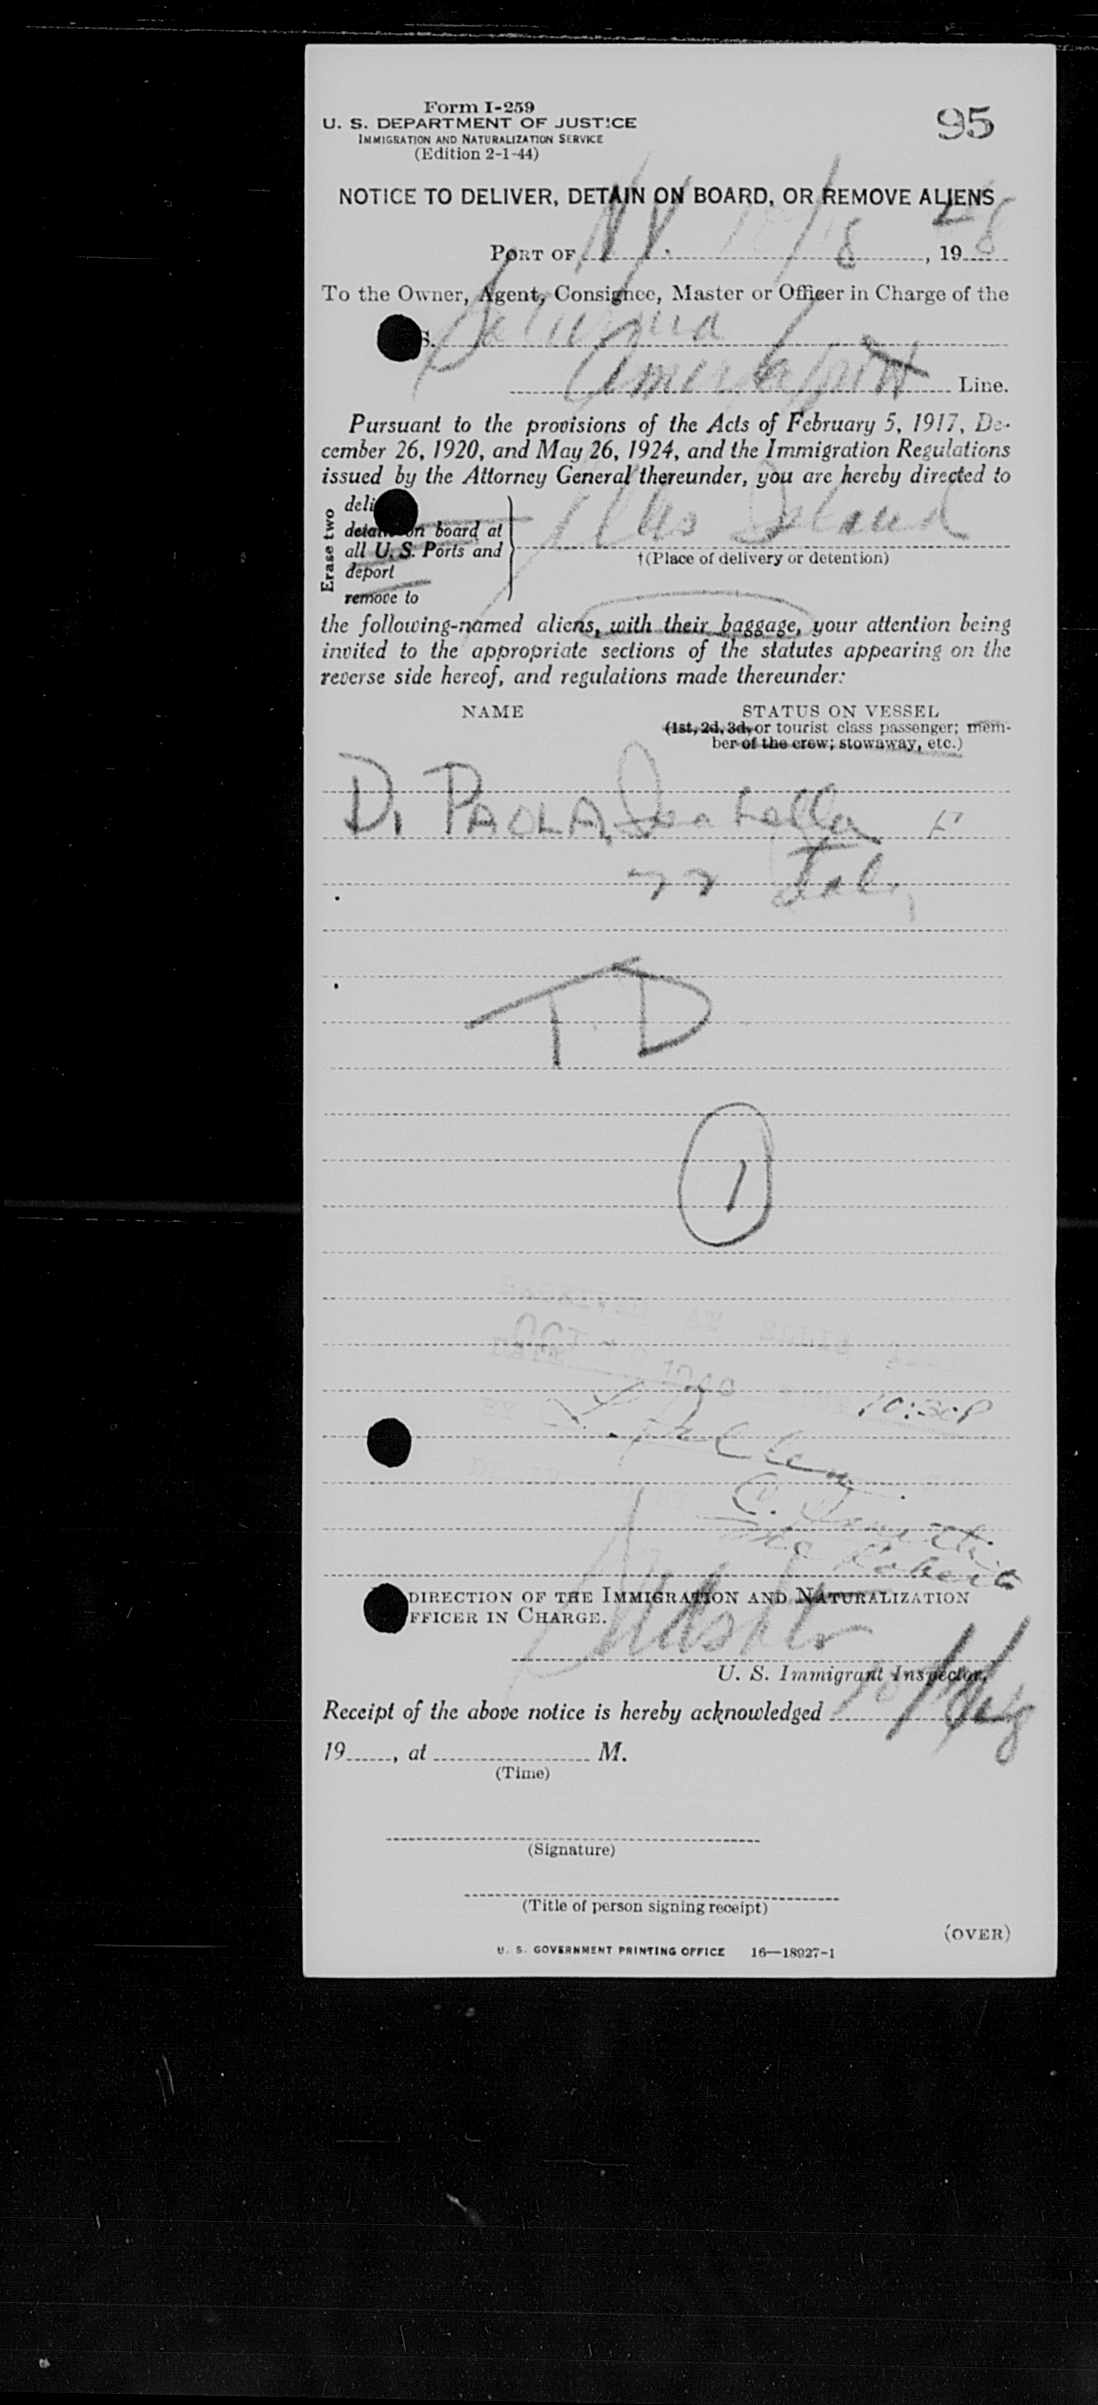 Form I-259
U. S. DEPARTMENT OF JUSTICE
IMMIGRATION AND NATURALIZATION SERVICE
(Edition 2-1-44)
95
NOTICE TO DELIVER, DETAIN ON BOARD, OR REMOVE ALIENS
PORT OF N.Y. 10/18, 1948
To the Owner, Agent, Consignee, Master or Officer in Charge of the
S. Saturnia
Line.
Pursuant to the provisions of the Acts of February 5, 1917, De-
cember 26, 1920, and May 26, 1924, and the Immigration Regulations
issued by the Attorney General thereunder, you are hereby directed to
Erase two
deli
detain on board at
all U. S. Ports and
deport
remove to
Ellis Island
†(Place of delivery or detention)
the following-named aliens, with their baggage, your attention being
invited to the appropriate sections of the statutes appearing on the
reverse side hereof, and regulations made thereunder:
NAME
STATUS ON VESSEL
(1st, 2d, 3d, or tourist class passenger; mem-
ber of the crew; stowaway, etc.)
Di PAOLA, Isabella F
77 Italy
TD
1
10:30P
DIRECTION OF THE IMMIGRATION AND NATURALIZATION
FFICER IN CHARGE.
U. S. Immigrant Inspector.
Receipt of the above notice is hereby acknowledged
19, at M.
(Time)
(Signature)
(Title of person signing receipt)
(OVER)
U. S. GOVERNMENT PRINTING OFFICE 16—18927-1